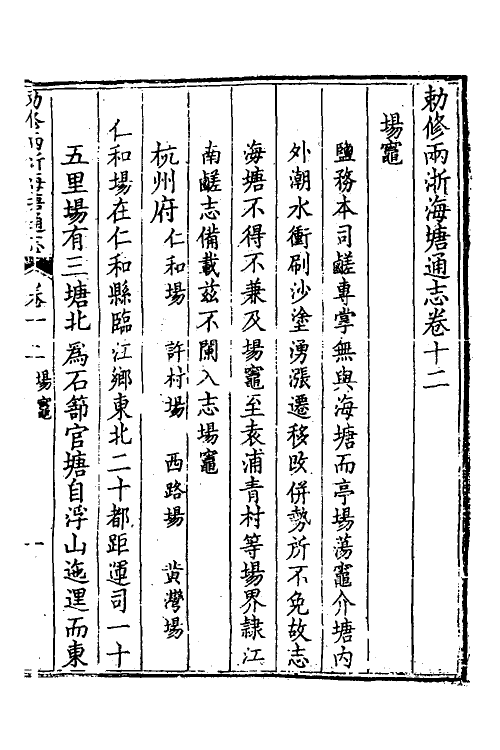 勅修兩浙海塘通志卷十二
場竈
鹽務本司鹺專掌無與海塘而亭場蕩竈介塘內
外潮水衝刷沙塗湧漲遷移改併勢所不免故志
海塘不得不兼及場竈至袁浦青村等場界隸江
南鹺志備載茲不闌入志場竈
杭州府 仁和場 許村場 西路場 黃灣場
仁和場在仁和縣臨江鄉東北二十都距運司一十
五里場有三塘北爲石篰官塘自浮山迤邐而東
勅修兩浙海塘通志 卷十二 場竈 一